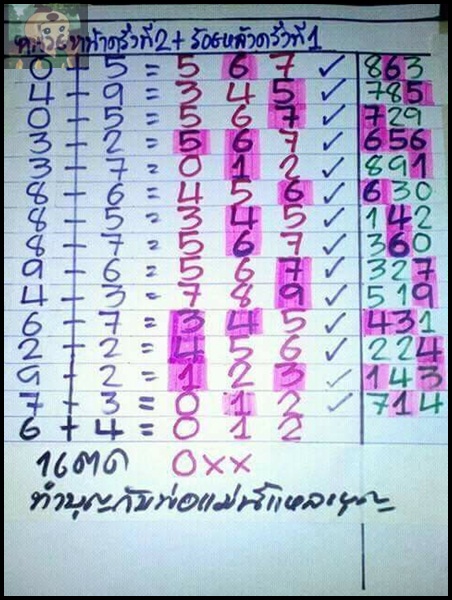 หน่วยหน้าครั้งที่2 + ร้อยหลังครั้งที่1
0 + 5 = 5 6 7 ✓ 863
4 + 9 = 3 4 5 ✓ 785
0 + 5 = 5 6 7 ✓ 729
3 + 2 = 5 6 7 ✓ 656
3 + 7 = 0 1 2 ✓ 891
8 + 6 = 4 5 6 ✓ 630
8 + 5 = 3 4 5 ✓ 142
8 + 7 = 5 6 7 ✓ 360
9 + 6 = 5 6 7 ✓ 327
4 + 3 = 7 8 9 ✓ 519
6 + 7 = 3 4 5 ✓ 431
2 + 2 = 4 5 6 ✓ 224
9 + 2 = 1 2 3 ✓ 143
7 + 3 = 0 1 2 ✓ 714
6 + 4 = 0 1 2
0xx
ทำบุญกับพ่อแม่